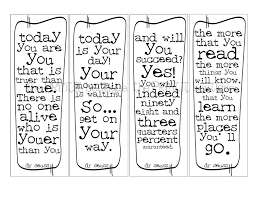 today
you are
you
that is
truer than
true.
There is
no one
alive
who is
youer
than you
dr seuss
today
is your
day!
Your
mountain
is waiting.
so...
get on
your
way.
dr seuss
and will
you
succeed?
Yes!
you will
indeed
ninety
eight and
three
quarters
percent
guaranteed.
dr seuss
the more
that you
read
the more
things you
will know.
the more
that you
learn
the more
places
you'll
go.
dr seuss